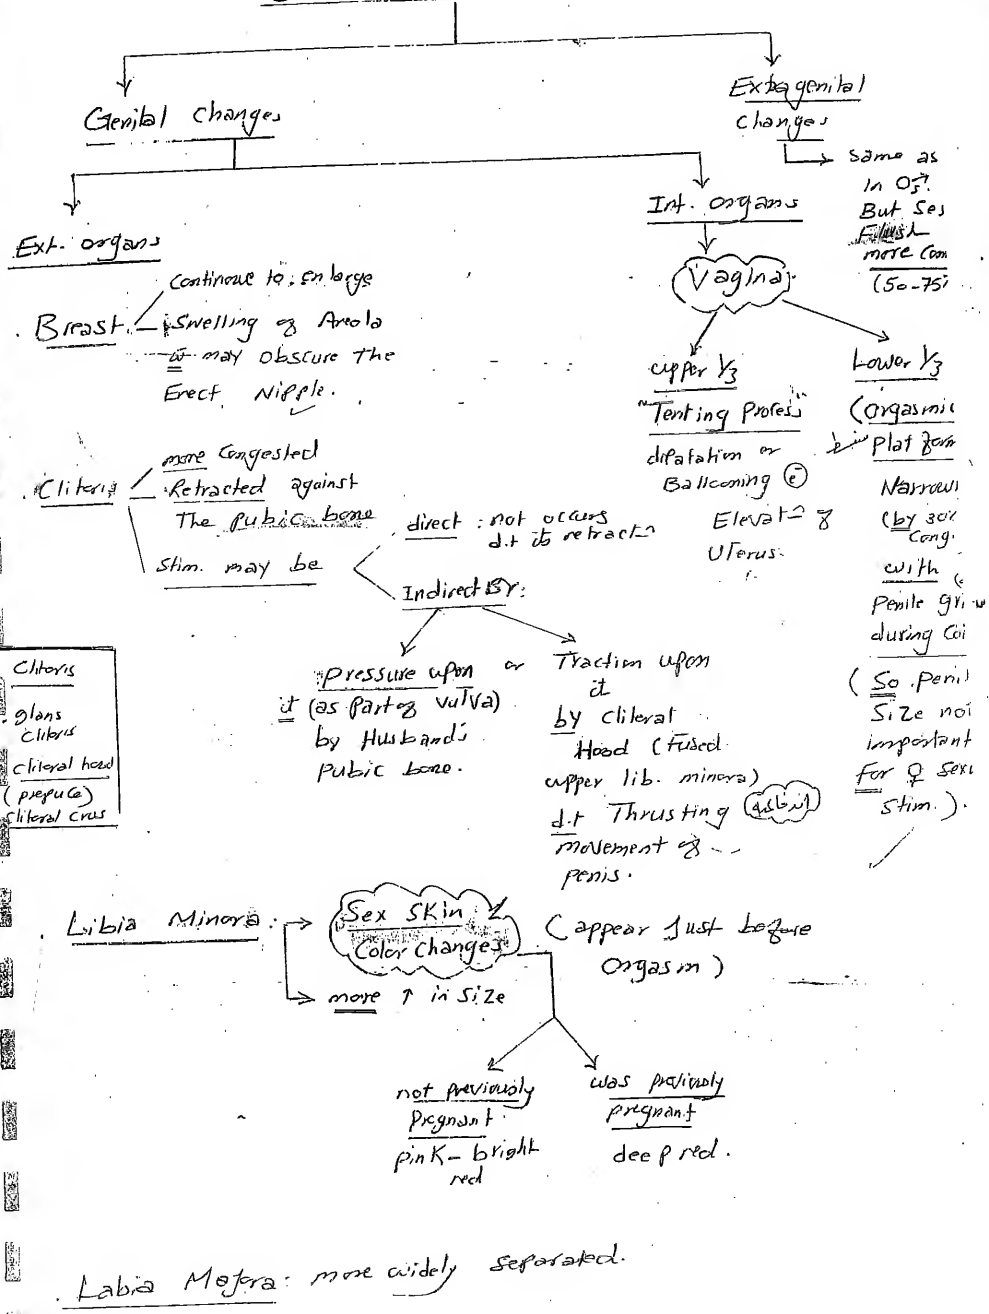 Genital changes
Extragenital
changes
same as
in ♂.
But Sex
Flush
more Com
(50-75%
Ext. organs
Int. organs
Vagina
Breast
Continoue to enlarge
Swelling of Areola
may obscure the
Erect Nipple.
Clitoris
more Congested
Retracted against
The pubic bone
Stim. may be
direct : not occurs
d.t its retract
Indirect By:
pressure upon
it (as part of vulva)
by Husband's
Pubic bone.
or
Traction upon
it
by Cliteral
Hood (Fused
upper lib. minora)
d.t Thrusting
movement of
penis.
upper 1/3
"Tenting Profess"
dilatation or
Ballooning ē
Elevat of
Uterus.
Lower 1/3
(orgasmic
Plat form
Narrowi
(by 30%
Cong.
with
Penile gri
during Coi
(So penil
Size not
important
For ♀ sexu
Stim.).
Clitoris
glans
Clitoris
Cliteral hood
(prepuce)
Cliteral crus
Libia Minora:
Sex Skin
Color Changes
(appear Just before
Orgasm)
more ↑ in Size
not previously
Pregnant
pink - bright
red
was previously
pregnant
deep red.
Labia Mojora: more widely separated.